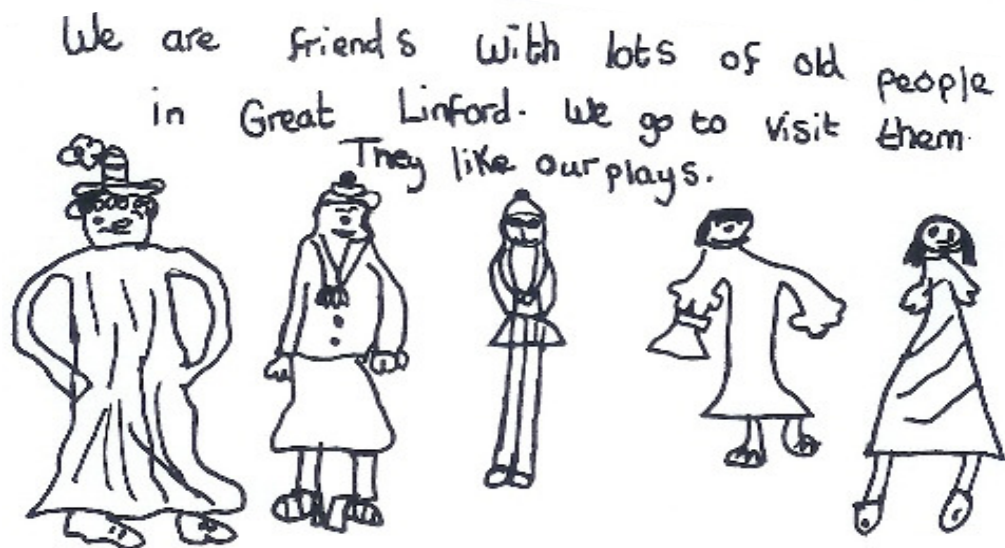 We are friends with lots of old people
in Great Linford. We go to visit them.
They like our plays.